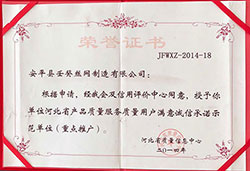 荣誉证书
JFWXZ-2014-18
安平县圣癸丝网制造有限公司：
根据申请，经我会及信用评价中心同意，授予你
单位河北省产品质量服务质量用户满意诚信承诺示
范单位（重点推广）。
河北省质量信息中心
二〇一四年